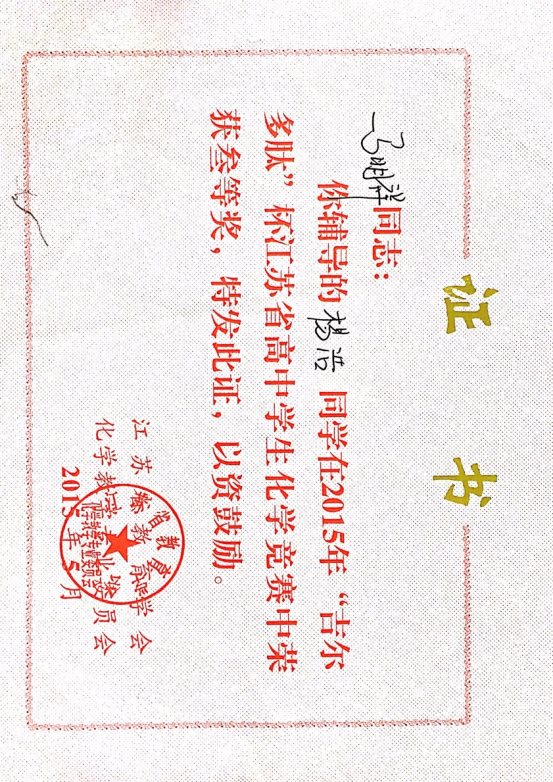 证 书
冯明祥同志：
你辅导的杨浩同学在2015年“吉尔
多肽”杯江苏省高中学生化学竞赛中荣
获叁等奖，特发此证，以资鼓励。
江苏省教育学会
化学教学专业委员会
2015年5月